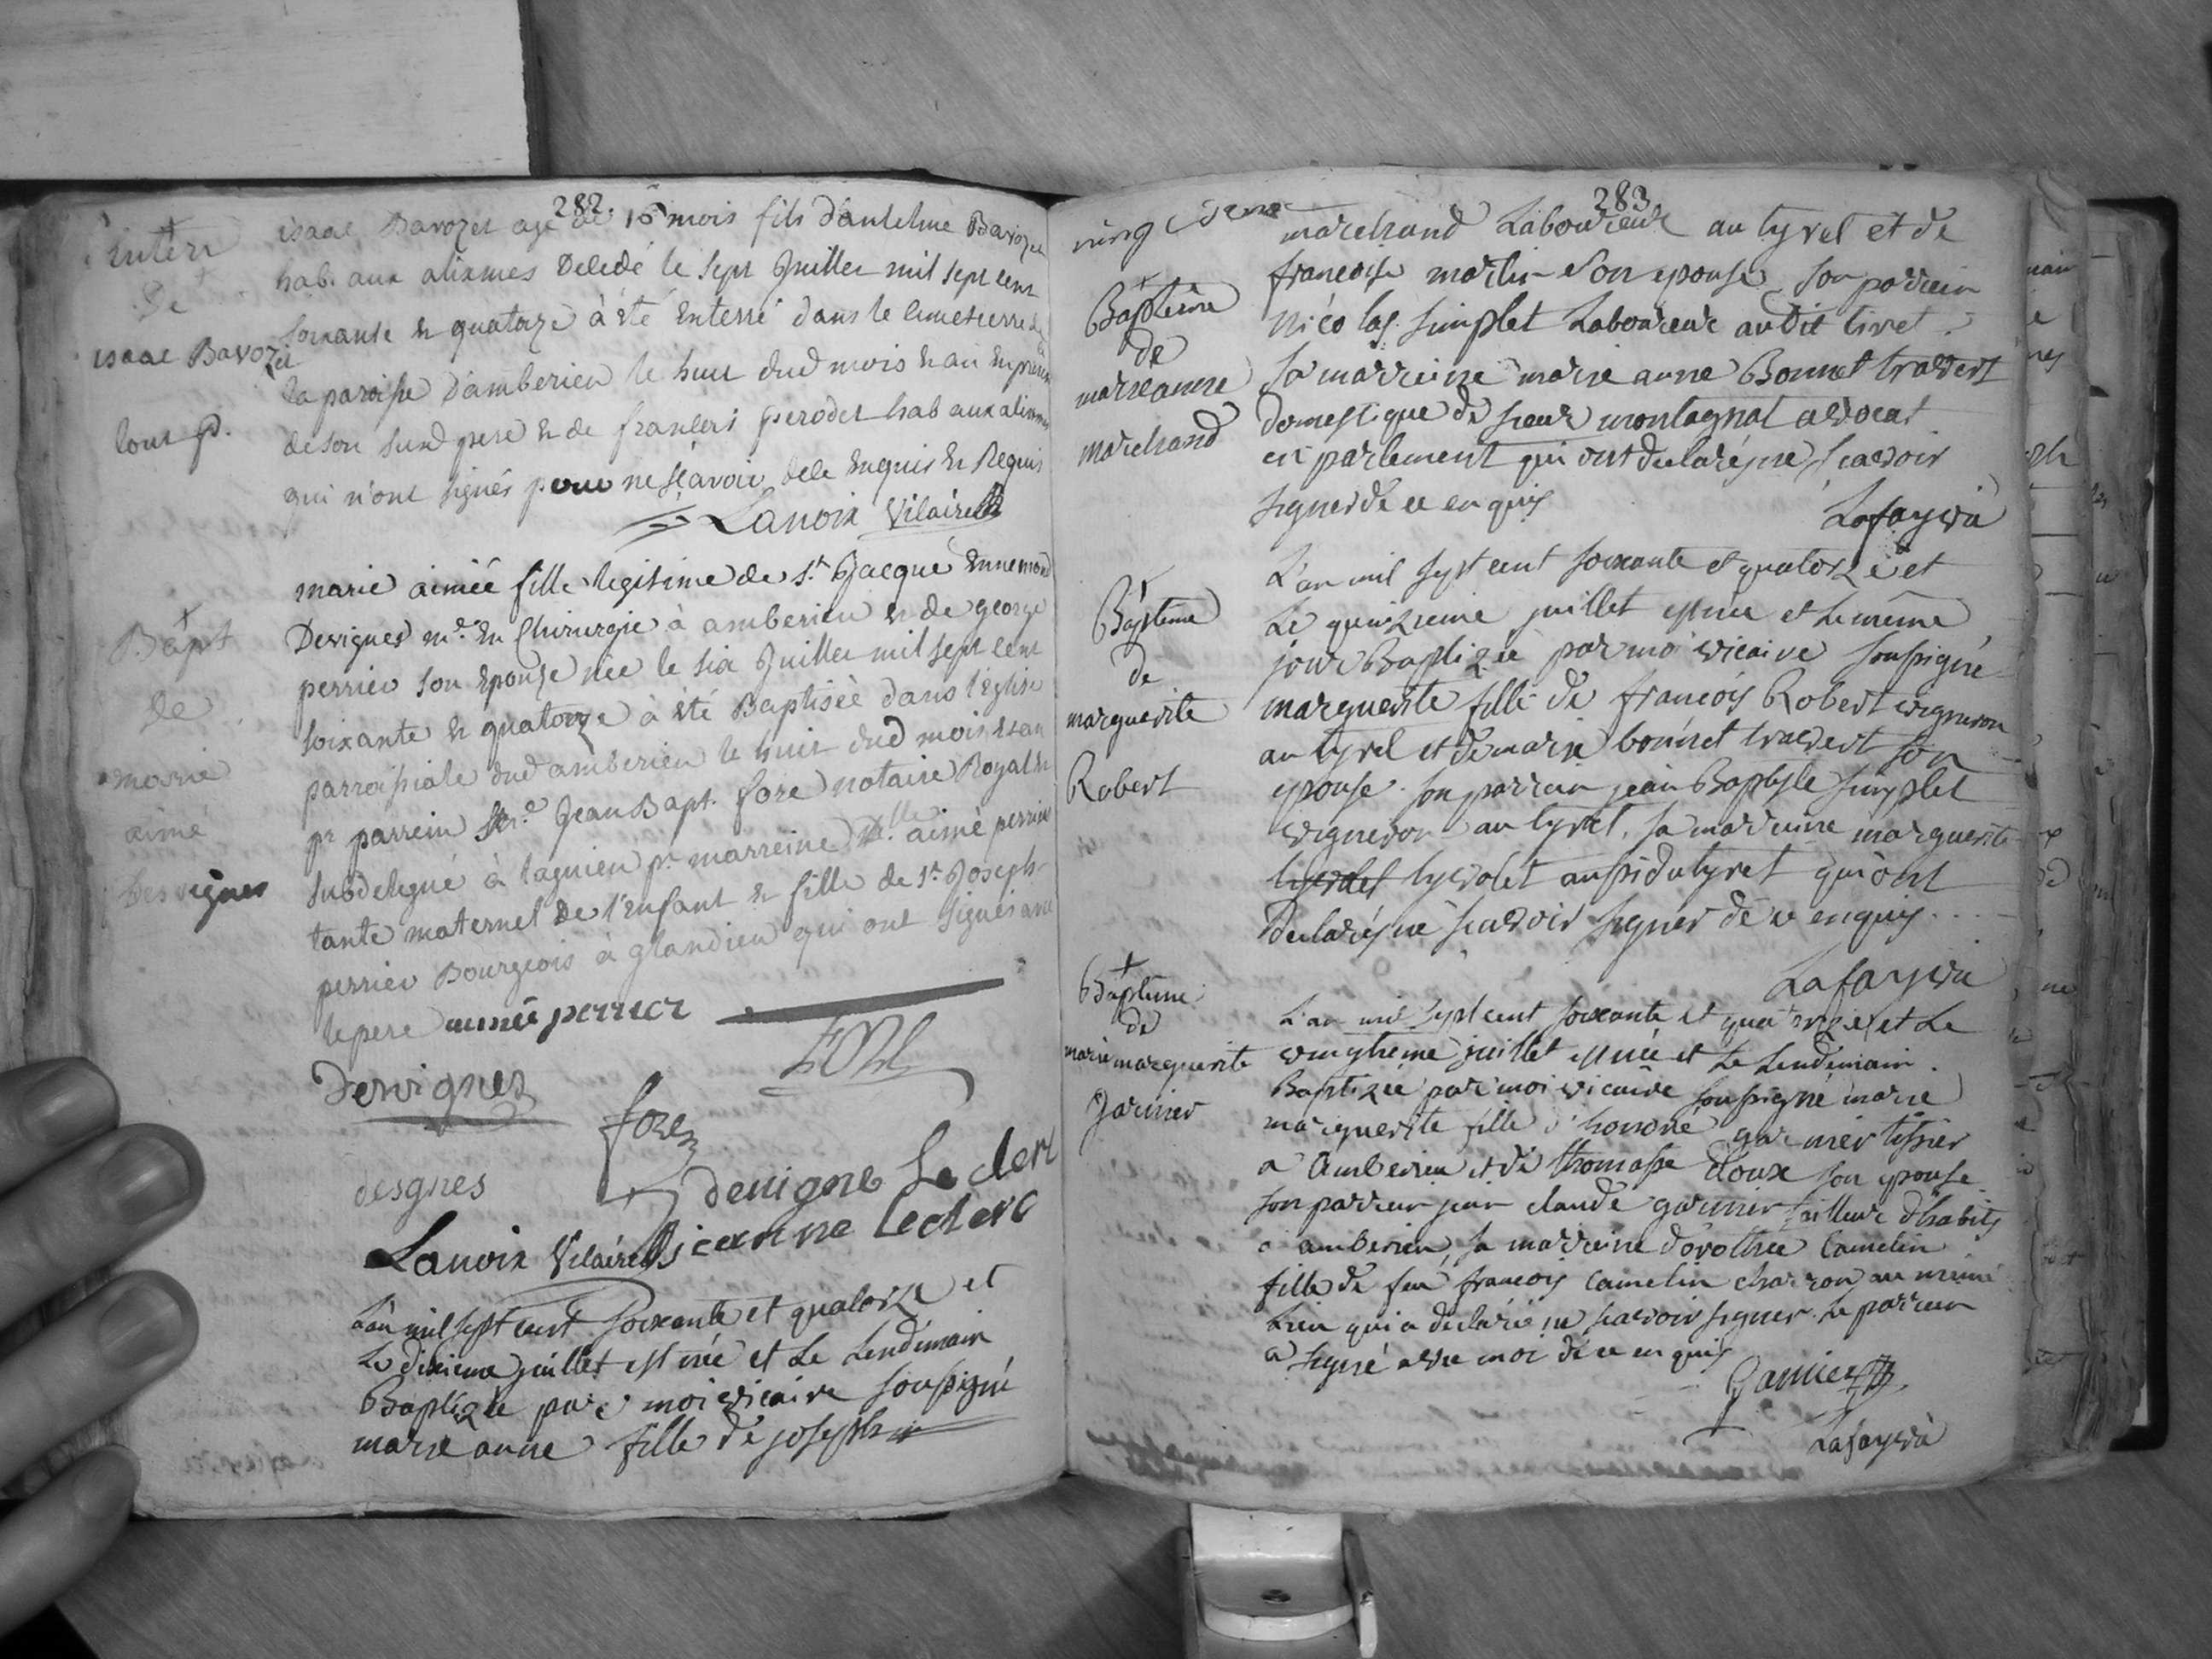 282.
Enterr
de
isaac Bavozet
isaac Bavozet agé de 16 mois fils d'anthelme Bavozet
hab. aux alixmes decedé le sept Juillet mil sept cent
soixante et quatorze à été enterré dans le cimetierre de
la paroisse d'amberieu le huit dud mois et an en presence
de son susd pere et de francois perodet hab aux alixmes
qui n'ont signés pour ne sçavoir de ce enquis et Requis
Lanoix Vilaire
Bapt
de
marie
aimé
Desvignes
marie aimée fille legitime de sr. Jacque Ennemond
Devignes me. en Chirurgie à amberieu et de george
perrier son epouse née le six Juillet mil sept cent
soixante et quatorze à été Baptisée dans l'Eglise
parroissiale dud amberieu le huit dud mois et an
pr parrein Jean Bapt. fore notaire Royal et
subdelegué à lagnieu pr marreine Dlle. aimé perrier
tante maternel de l'enfant et fille de sr. Joseph
perrier Bourgeois à glandieu qui ont signés avec
le pere aimée perrier
FORE
Dervignes
fore
desgnes
devigne Le clerc
Lanoix Vilaire jeanne Leclerc
L'an mil sept cent soixante et quatorze et
Le dixieme juillet est née et Le Lendemain
Baptizée par moi vicaire soussigné
marie anne fille de joseph
283
Baptême
de
marieanne
marchand
marchand Laboureur au tyret et de
francoise martin son epouse, son parrein
nicolas simplet Laboureur audit tiret.
sa marreine marie anne Bonnet travert
domestique de sieur montagnat avocat
en parlement qui ont declarés ne scavoir
signer de ce enquis
Lafay vic
Baptême
de
marguerite
Robert
L'an mil sept cent soixante et quatorze et
Le quinzieme juillet est née et le même
jour Baptizée par moi vicaire soussigné
marguerite fille de francois Robert vigneron
au tyret et de marie bonnet travert son
epouse. son parrein jean Baptiste simplet
vigneron au tyret, sa marreine marguerite
lyvolet aussi du tyret qui ont
declarés ne scavoir signer de ce enquis.
Lafay vic
Baptême
de
marie marguerite
Garnier
L'an mil sept cent soixante et quatorze et Le
vingtieme juillet est née et Le Lendemain
Baptizée par moi vicaire soussigné marie
marguerite fille d'honoré garnier tissier
a Amberieu et de thomasse doux son epouse
son parrein jean claude garnier tailleur d'habits
a amberieu, sa marreine dorothee Camelin
fille de feu francois Camelin charron au meme
Lieu qui a declaré ne scavoir signer. Le parrein
a signé avec moi de ce enquis
Garnier
Lafay vic